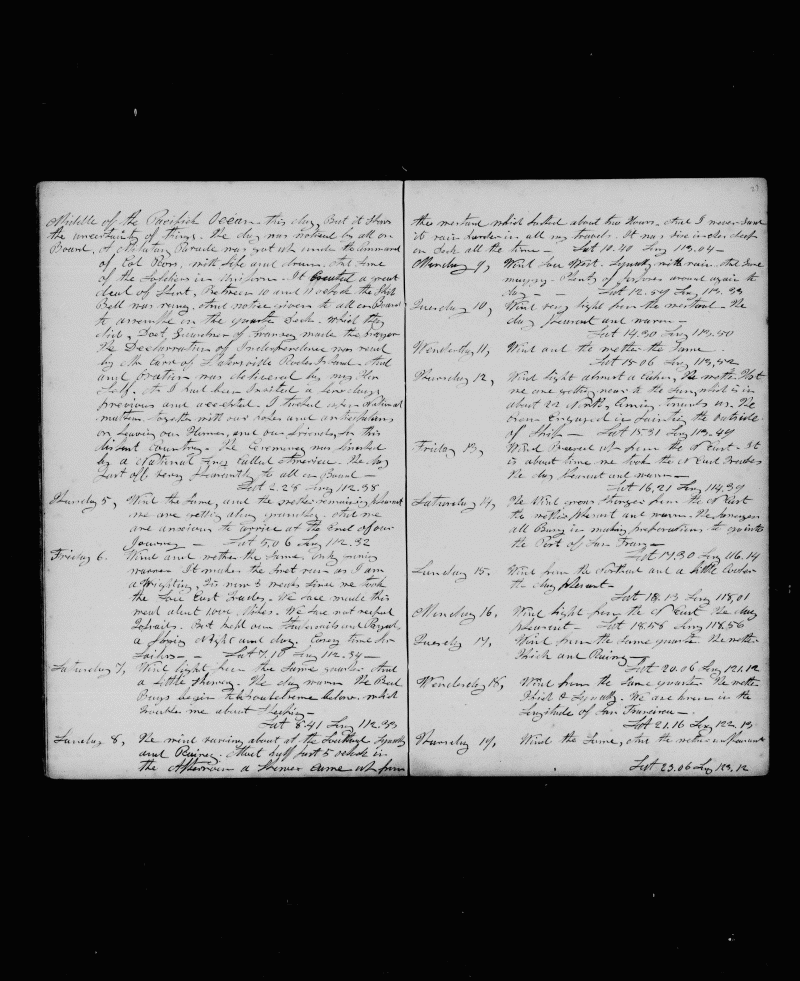 Middle of the Pacifick Ocean this day, But it shows
the uncertainty of things. The day was noticed by all on
Board. A Military Parade was got up under the Command
of Col. with fife and drum. And some
of the Soldiers in Uniform. It Created a great
deal of Sport. Between 10 and 11 oclock the Ship
Bell was rung. And notice given to all on Board
to assemble on the quarter Deck. which they
did. Doct. of made the Prayer
The Declaration of Independence was read
by Mr Carr of Slatersville Rodes Island. And
and Oration was delivered by my
Self. As I had been Invited a few days
previous and accepted. I touched upon National
matters. together with our hopes and anticipations
on leaving our Homes, and our friends, for this
distant Country. The Ceremony was finished
by a National Song Called America. The day
past off very pleasantly to all on Board.—
Lat 2.28 Long 112.38
Thursday 5, Wind the Same, and the wether remaining pleasant
we are getting along and we
are anxious to arrive at the End of our
Journey — Lat 5.06 Long 112.32
Friday 6. Wind and wether the Same. only
warmer. It makes the Sweat run as I am
a Writing, Tis now 3 weeks since we took
the Sou East Trades. We have made this
week about 1000 Miles. We have not reefed
Topsails. But held our and Royals
a flying Night and day. Easy time for
Sailors — Lat 7.10 Long 112.34 —
Saturday 7, Wind light from the Same quarter And
a little Showery. The day warm. The Bed
Bugs begin to trouble some below. which
me about Sleeping —
Lat 8.41 Long 112.33
Sunday 8, The wind varying about at the Southard Squally
and Rainey. About half past 5 oclock in
the Afternoon a Shower came up from
27
the westard which lasted about two Hours. And I never Saw
it rain harder in all my travels. It was Six inches deep
on Deck all the time — Lat 10.40 Long 113.04 —
Monday 9, Wind Sou West. Squally with rain. And Some
Plenty of around again to
day — — Lat 12.59 Long 113.33
Tuesday 10, Wind very light from the westard. The
day pleasant and warm —
Lat 14.30 Long 113.50
Wendesday 11, Wind and the wether the Same.
Lat 15.06 Long 113.52
Thursday 12, Wind light almost a Calm, The wether Hot
we are getting near to the Sun, which is in
about 22 of North, Coming towards us. The
Crew Engaged in Painting the outside
of Ship — Lat 15.31 Long 113.49
Friday 13, Wind Breezed up from the N East. It
is about time we took the N East Trades
the day pleasant and warm —
Lat 16,21 Long 114.39
Saturday 14, The Wind grows Stronger from the N East
the wether pleasant and warm. The passengers
all Busy in making preparations to quit
the Port of San Fran —
Lat 17.30 Long 116.14
Sunday 15. Wind from the Northard and a little Cooler
the day pleasant —
Lat 18.13 Long 118,01
Monday 16. Wind light from the N East The day
pleasant — Lat 18.58 Long 118.56
Tuesday 17, Wind from the Same quarter The wether
Thick and Rainey —
Lat 20.06 Long 121.12
Wendesday 18, Wind from the Same quarter The wether
Thick & Squally. We are know in the
Longitude of San Francisco —
Lat 21.16 Long 122.13
Thursday 19, Wind the Same, and the wether pleasant
Lat 23.06 Long 123.12